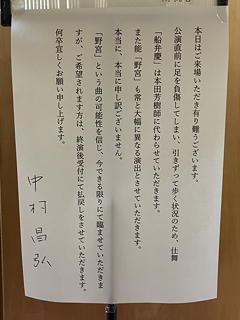 本日はご来場いただき有り難うございます。
公演直前に足を負傷してしまい、引きずって歩く状況のため、仕舞
「船弁慶」は本田芳樹師に代わらせていただきます。
また能「野宮」も常と大幅に異なる演出とさせていただきます。
本当に、本当に申し訳ございません。
「野宮」という曲の可能性を信じ、今できる限りにて臨ませていただきま
すが、ご希望されます方は、終演後受付にて払戻しをさせていただきます。
何卒宜しくお願い申し上げます。
中村昌弘